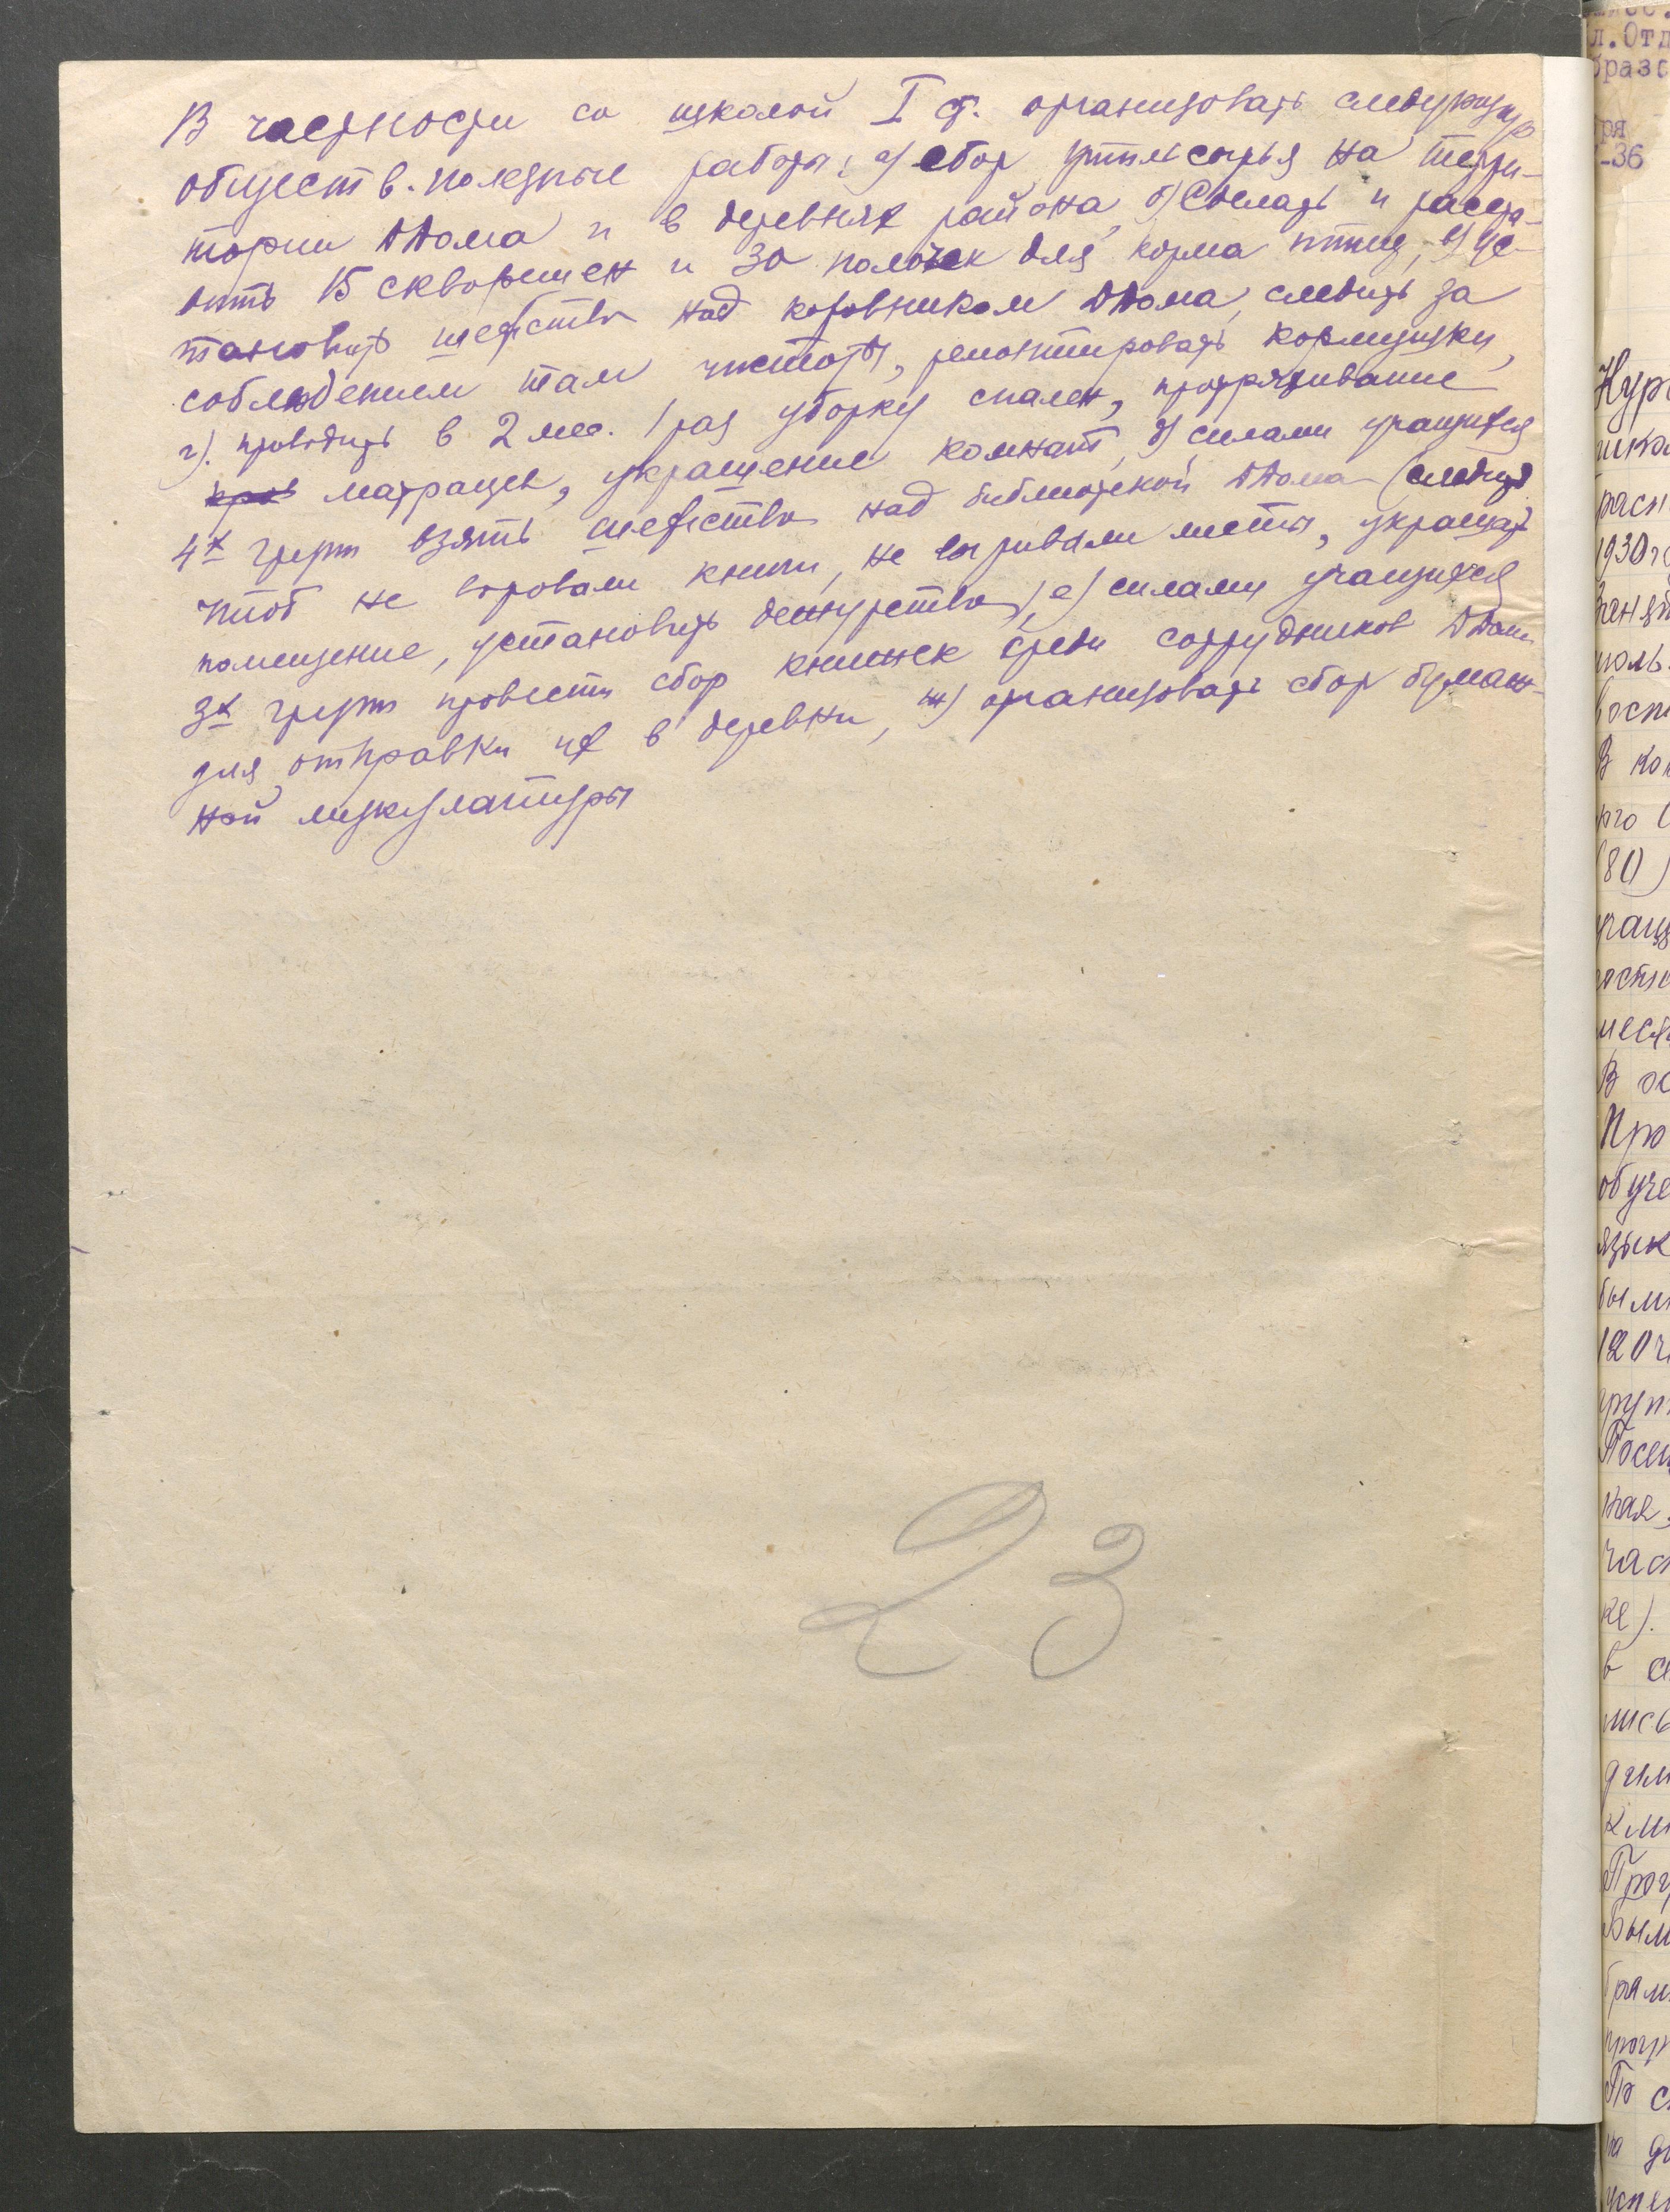 В частности со школой I ст. организовать следующую
обществ. полезные работы: а) сбор утильсырья на терри-
тории ДДома и в деревнях района, б) Сделать и расста-
вить 15 скворешен и 30 полочек для корма птиц, в) ус-
тановить шефство над коровником ДДома, следить за
соблюдением там чистоты, ремонтировать кормушки,
г). проводить в 2 мес. 1 раз уборку спален, протряхивание
матрацев, украшение комнат, д) силами учащихся
4х групп взять шефство над библиотекой ДДома (следить
чтоб не воровали книги, не вырывали листы, украшать
помещение, установить дежурство), е) силами учащихся
3х групп провести сбор книжек среди сотрудников ДДома
для отправки их в деревни, ж) организовать сбор бумаж-
ной макулатуры
23
л.Отд
ря
-36
Кур
1930
В ко
(80)
В ос
Про
обуче
язык
были
120
Посещ
ная,
час
ке).
в с
По с
на